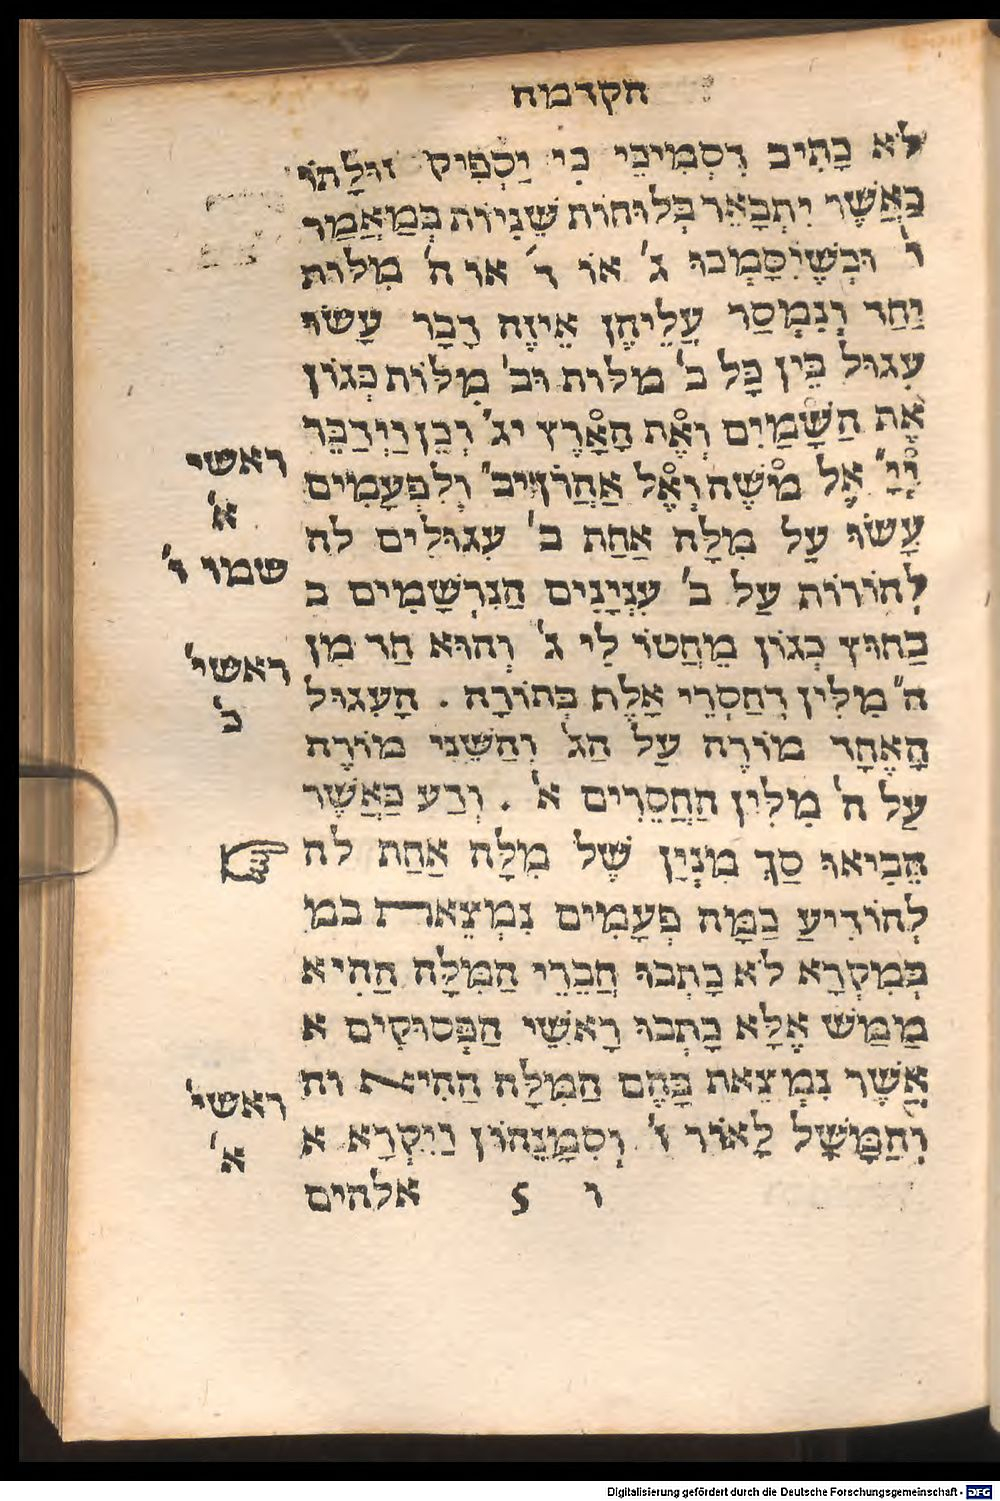 הקדמה
לֹא כָּתִיב דִסְמִיכֵי כִּי יַסְפִּיק זוּלָתוֹ
כַּאֲשֶׁר יִתְבָּאֵר בְּלוּחוֹת שְׁנִיּוֹת בְּמַאֲמַר
ו׳ וּכְשֶׁנִּסְמְכוּ ג׳ אוֹ ד׳ אוֹ ה׳ מִלּוֹת
יַחַד וְנִמְסַר עֲלֵיהֶן אֵיזֶה דָבָר עָשׂוּ
עִגוּל בֵּין כָּל ב׳ מלות וב׳ מִלּוֹת כְּגוֹן
אֶת הַשָּׁמַיִם וְאֶת הָאָרֶץ יג׳ וְכֵן וַיְדַבֵּר
יְיָ אֶל מֹשֶׁה וְאֶל אַהֲרֹן יב׳ וְלִפְעָמִים
עָשׂוּ עַל מִלָּה אַחַת ב׳ עִגוּלִים לה
לְהוֹרוֹת עַל ב׳ עִנְיָנִים הַנִּרְשָׁמִים ב
בַּחוּץ כְּגוֹן מֵחֲטוֹ לִי ג׳ וְהוּא חַד מִן
ה״ מִלִּין דְחַסְרֵי אָלֶף בְּתוֹרָה . הָעִגוּל
הָאֶחָד מוֹרֶה עַל הַג׳ וְהַשֵּׁנִי מוֹרֶה
עַל ה׳ מִלִּין הַחֲסֵרִים א׳ . וְדַע כַּאֲשֶׁר
הֵבִיאוּ סַךְ מִנְיַן שֶׁל מִלָּה אַחַת לה
לְהוֹדִיעַ כַּמָּה פְעָמִים נִמְצֵאת במ
בְּמִקְרָא לֹא כָּתְבוּ חֲבֵרֵי הַמִּלָּה הַהִיא
מַמַּשׁ אֶלָּא כָּתְבוּ רָאשֵׁי הַפְּסוּקִים א
אֲשֶׁר נִמְצֵאת בָּהֶם הַמִּלָּה הַהִיא וה
וְהַמָּשָׁל לָאוֹר ז׳ וְסִמָּנֵהוֹן וַיִּקְרָא א
ו 5 אלהים
ראשי
א׳
שמו ו׳
ראשי׳
כ׳
ראשי׳
א׳
Digitalisierung gefördert durch die Deutsche Forschungsgemeinschaft - DFG